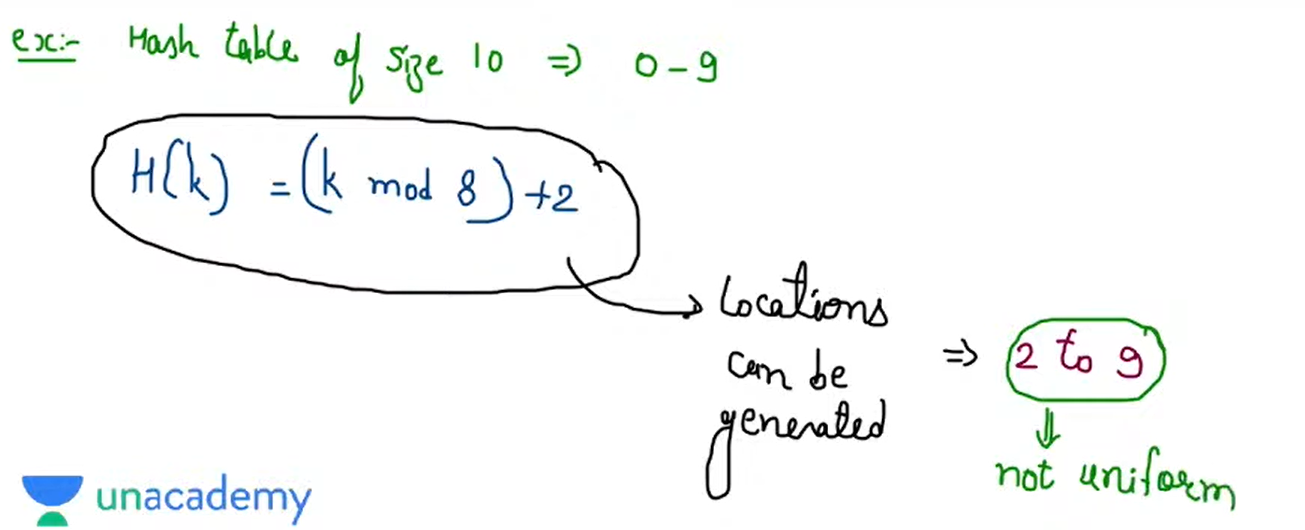 ex:- Hash table of size 10 ⇒ 0-9
H(k) = (k mod 8) +2
Locations
can be
generated
⇒ 2 to 9
⇓
not uniform
unacademy